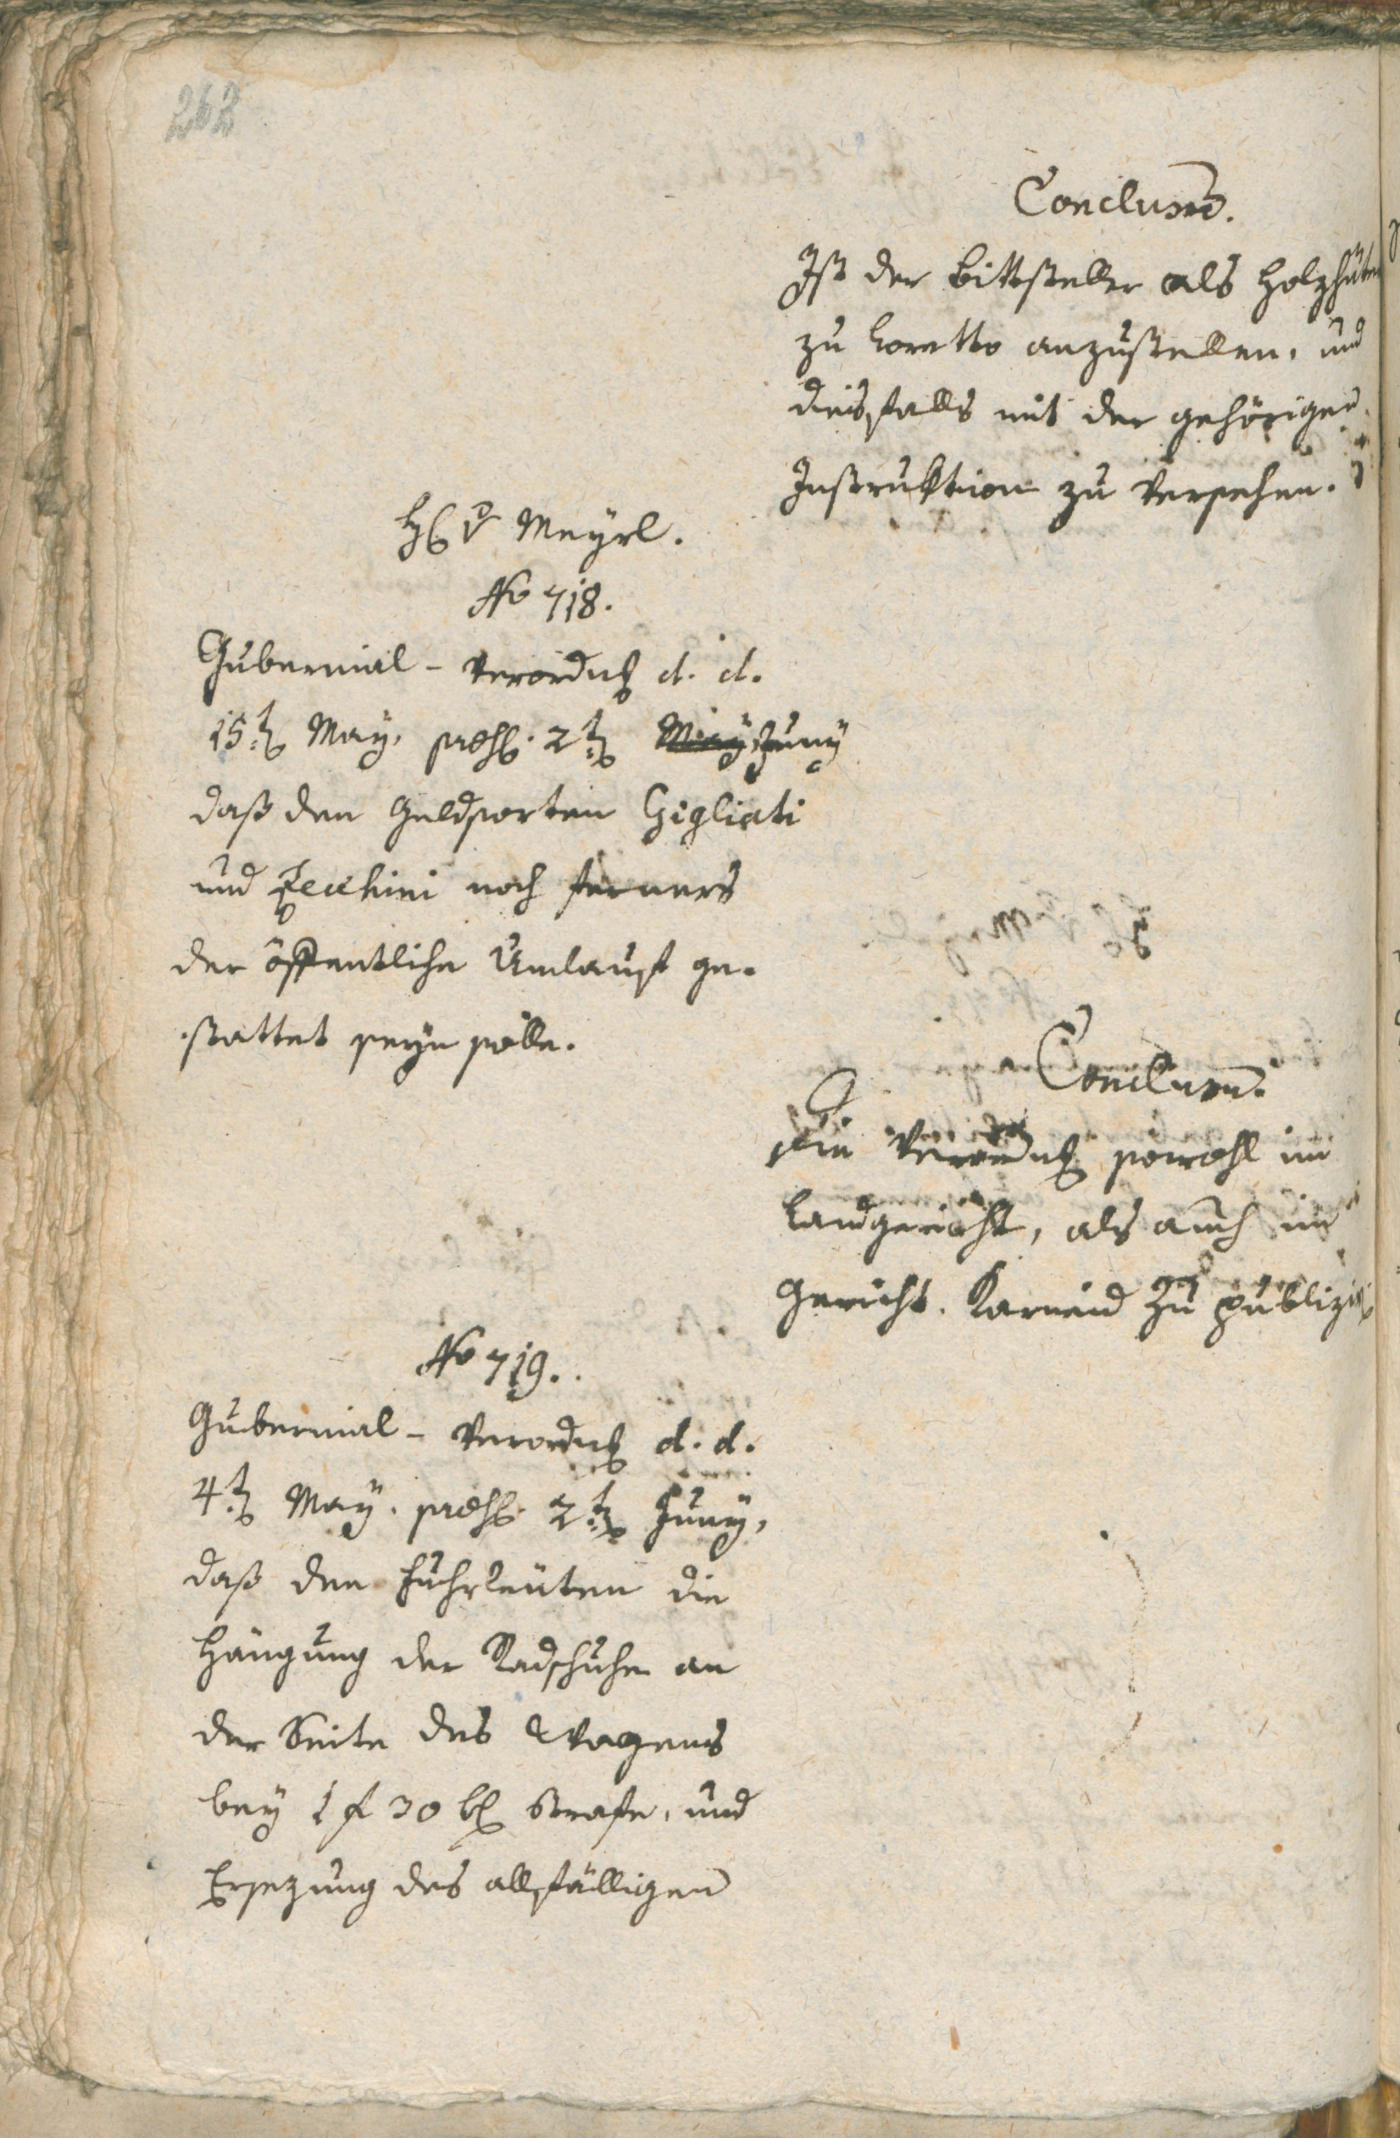 262
Conclusum.
Ist der Bittsteller als Holzhüter
zu Loretto anzustellen, und
diesfalls mit der gehörigen
Instruktion zu versehen.
H. v Meyrl.
No 718.
Gubernial-Verordng d. d.
15t May, praes. 2t May Juny
daß den Geldsorten Gigliati
und Zecchini noch ferners
der öffentliche Umlauf ge-
stattet seyn solle.
Conclusum.
Die Verordng sowohl im
Landgericht, als auch im
Gericht Karneid zu publizi
No 719.
Gubernial-Verordng d. d.
4t May. praes. 2t Juny,
daß den Fuhrleuten die
Hängung der Radschuhe an
der Seite des Wagens
bey 1 f 30 kr Strafe, und
Ersezung des allfälligen